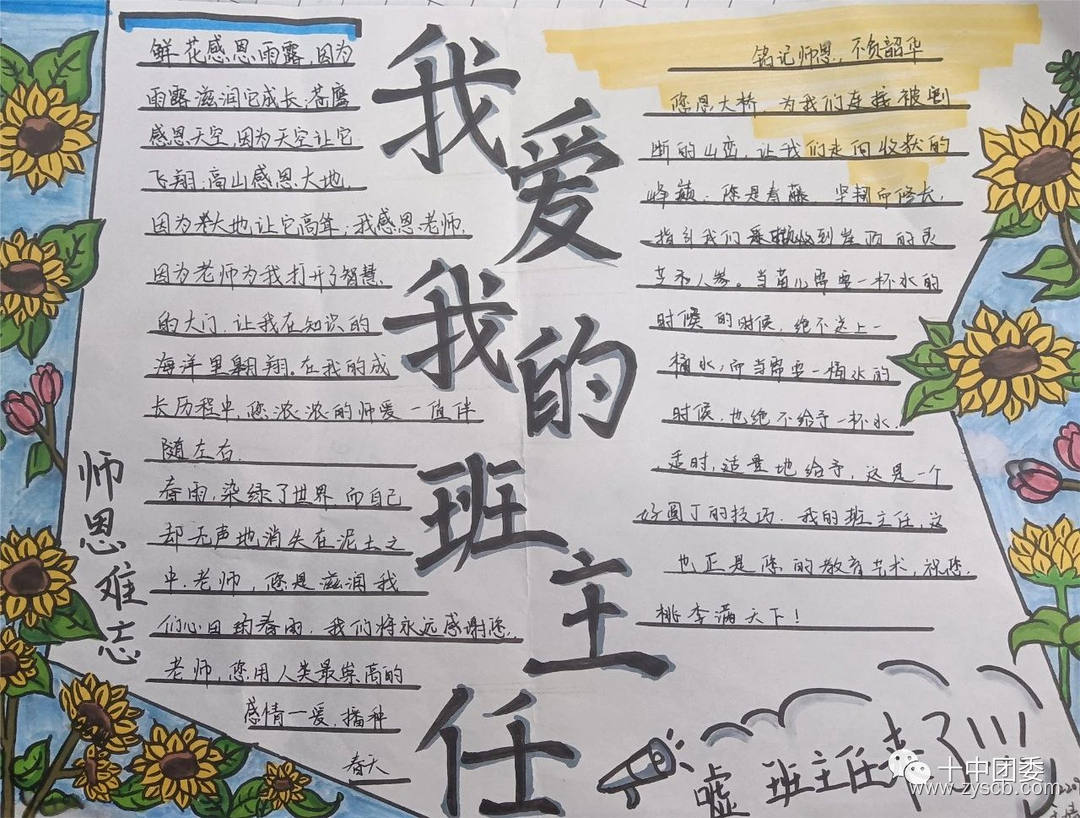 我爱我的班主任
鲜花感恩雨露,因为
雨露滋润它成长;苍鹰
感恩天空,因为天空让它
飞翔;高山感恩大地,
因为大地让它高耸;我感恩老师,
因为老师为我打开了智慧
的大门,让我在知识的
海洋里翱翔。在我的成
长历程中,您浓浓的师爱一值伴
随左右.
春雨,染绿了世界,而自己
却无声地消失在泥土之
中.老师,您是滋润我
们心田的春雨,我们将永远感谢您.
老师,您用人类最崇高的
感情一爱,播种
春天
师恩难忘
铭记师恩,不负韶华
您恩大桥,为我们连接被割
断的山峦,让我们走向收获的
峰巅;您是春藤,坚韧而修长,
指引我们采撷到崖顶的灵
芝和人参。当苗儿需要一杯水的
时候的时候,绝不送上一
桶水;而当需要一桶水的
时候.也绝不给予一杯水.
适时,适量地给予,这是一个
好园丁的技巧.我的班主任,这
也正是您的教育艺术,祝您
桃李满天下!
嘘 班主任来了!!!
十中团委
www.zyscb.com